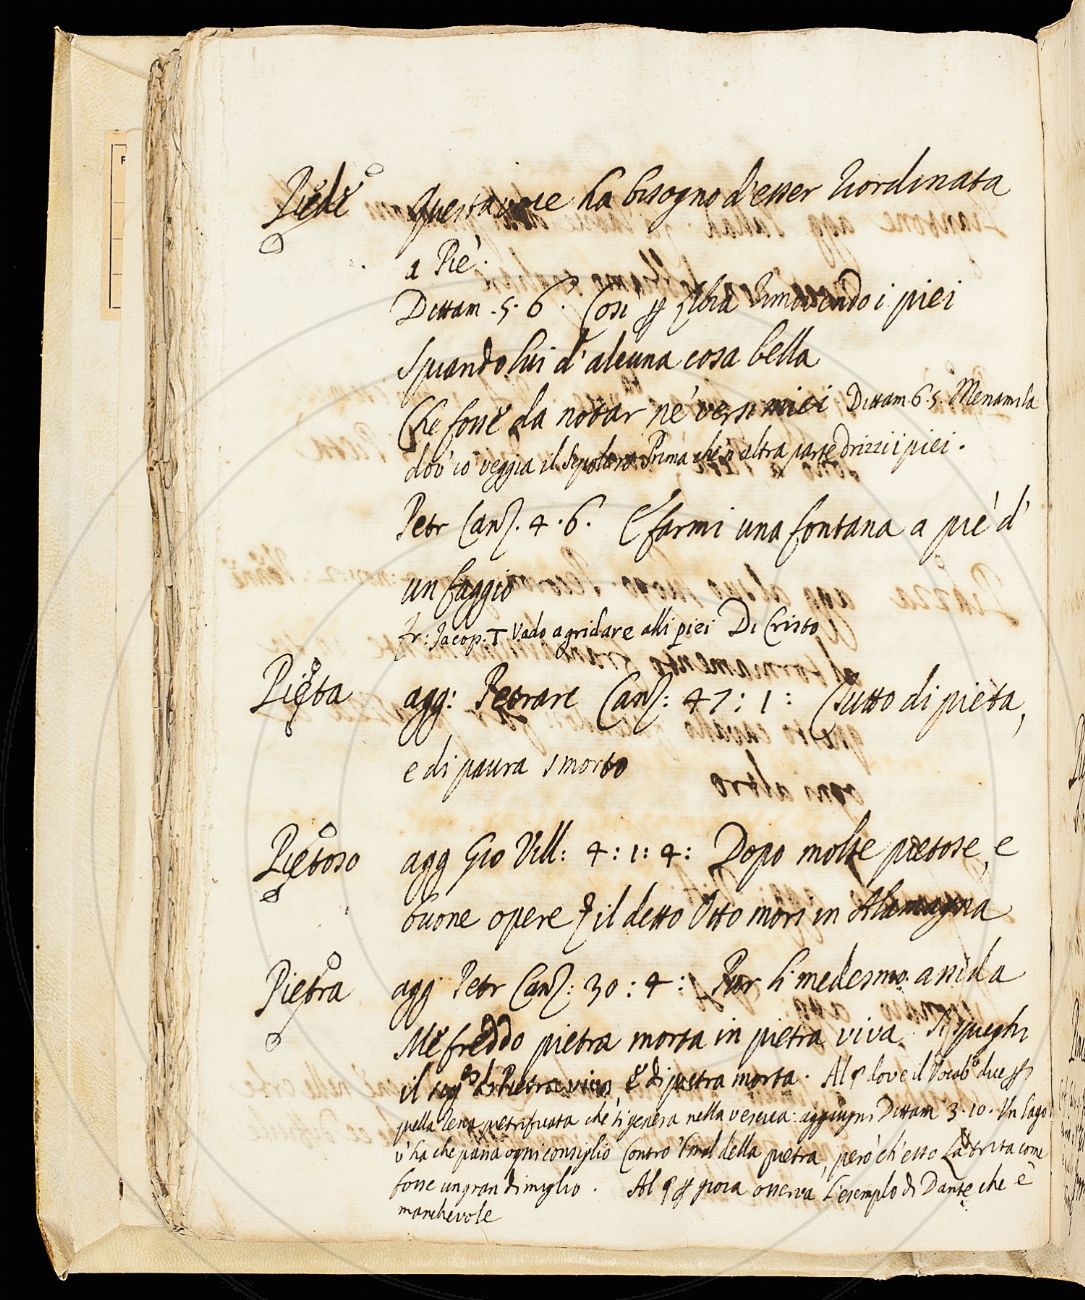 Piede Questa voce ha bisogno d'esser riordinata
a Piè.
Dittam. 5. 6. Così rimovendo i piei
Spiando lui d'alcuna cosa bella
Che fosse da notar ne' versi miei Dittam. 6. 5. Menami la
dov' io veggia il sepolcro Prima ch' altra parte drizzi i piei.
Petr Canz. 4. 6. E farmi una fontana a piè d'
un faggio
Fr: Jacop: T. Vado a gridare alli piei Di Cristo
Pieta agg: Petrarc Canz: 47: 1: Tutto di pieta,
e di paura smorto
Pietoso agg Gio Vill: 4: 1: 4: Dopo molte pietose, e
buone opere il detto Otto morì in Alamagna
Pietra agg Petr Canz: 30: 4: Pur lì medesmo assido
Me freddo pietra morta in pietra viva. Si spieghi
il sig.to di Pietra viva, e di pietra morta. Al § dove il Vocab.o dice
quella rena petrificata che si genera nella vescica: aggiugni Dittam 3. 10. Un lago
v' ha che passa ogni consiglio Contro 'l mal della pietra, però ch' esso La trita come
fosse un gran di miglio. Al § gioia osserva l'esemplo di Dante che è
manchevole